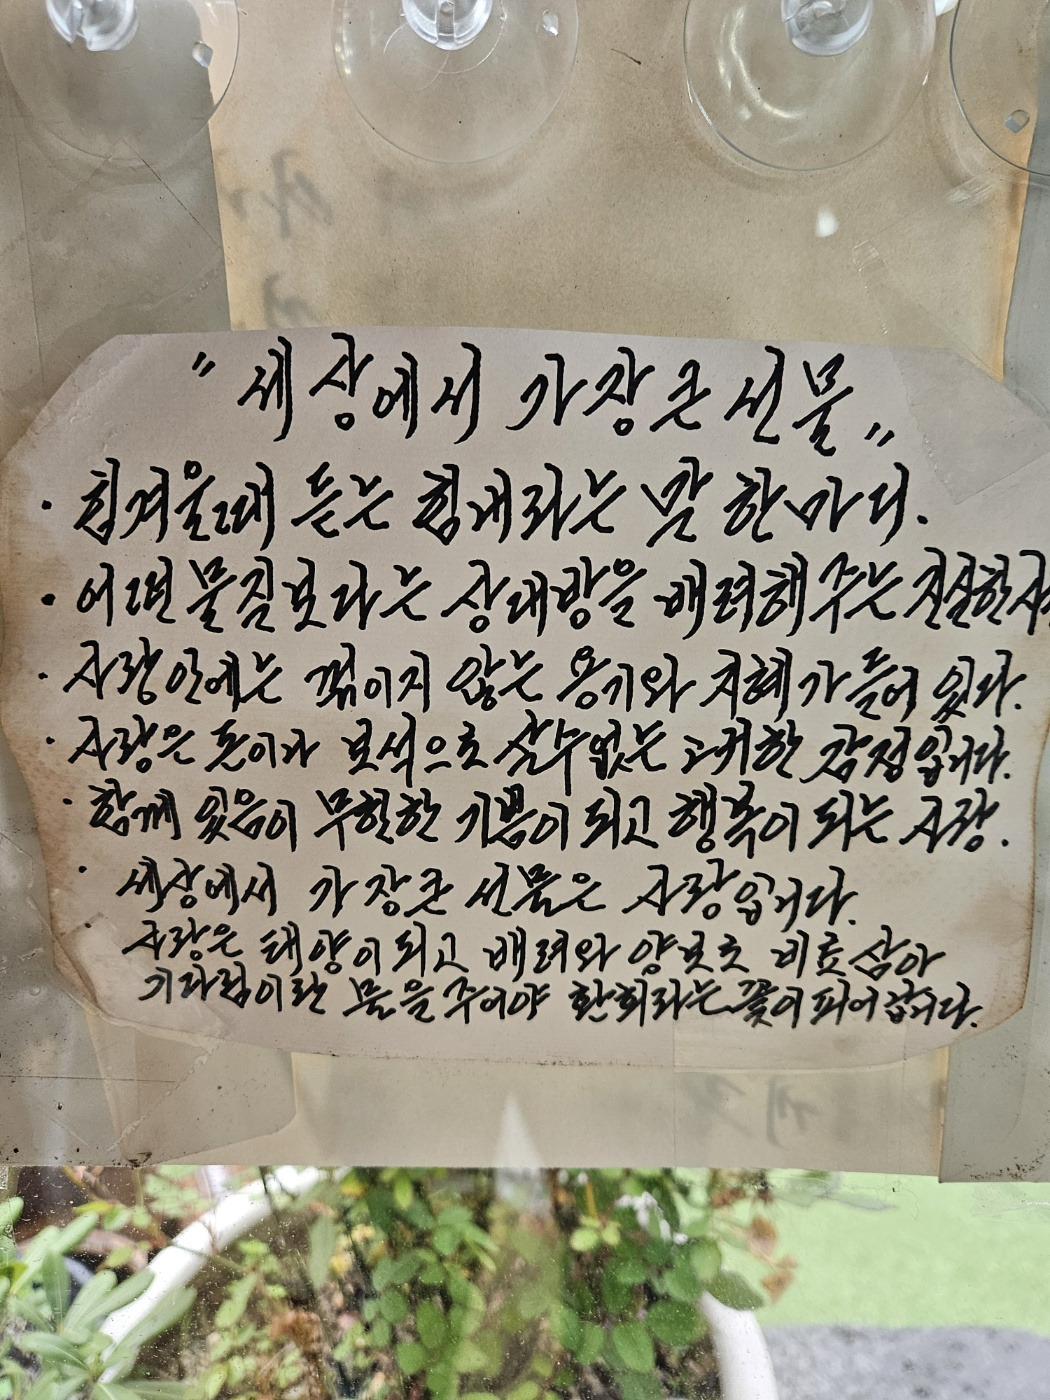 "세상에서 가장 큰 선물"
· 힘겨울때 듣는 힘내라는 말 한마디.
· 어떤 물질보다는 상대방을 배려해 주는 진실한
· 사랑안에는 꺾이지 않는 용기와 지혜가 들어 있다.
· 사랑은 돈이나 보석으로 살수 없는 고귀한 감정입니다.
· 함께 있음이 무한한 기쁨이 되고 행복이 되는 사랑.
· 세상에서 가장 큰 선물은 사랑입니다.
사랑은 태양이 되고 배려와 양보로 비료삼아
기다림이란 물을 주어야 환희라는 꽃이 피어납니다.